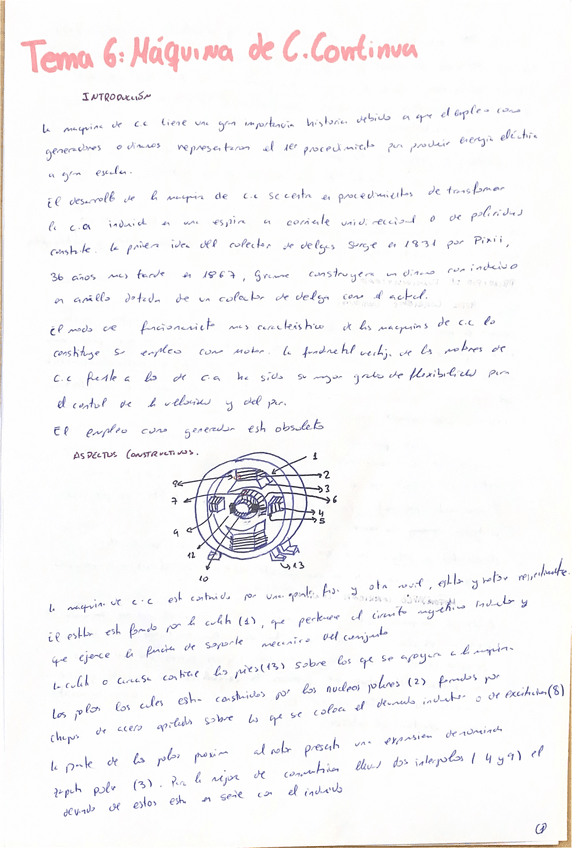 Tema 6: Máquina de C.Continua
INTRODUCCIÓN
La maquina de c.c tiene una gran importancia historica debido a que el empleo como
generadores o dinamos representaron el 1er procedimiento para producir energia eléctrica
a gran escala.
El desarrollo de la maquina de c.c se centra en procedimientos de transformar
la c.a inducida en una espira en corriente unidireccional o de polaridad
constante. La primera idea del colector de delgas surge en 1831 por Pixii,
36 años mas tarde en 1867, Gramme construyera un dinamo con inducido
en anillo dotada de un colector de delga como el actual.
El modo de funcionamiento mas caracteristico de las maquinas de c.c lo
constituye su empleo como motor. La fundamental ventaja de los motores de
c.c frente a los de c.a ha sido su mayor grado de flexibilidad para
el control de la velocidad y del par.
El empleo como generador esta obsoleto
ASPECTOS CONSTRUCTIVOS.
1
2
3
6
7
4
5
9
12
10
13
La maquina de c.c esta constituida por una parte fija y otra movil, estator y rotor respectivamente.
El estator esta formado por la culata (1), que pertenece al circuito magnetico inductor y
que ejerce la funcion de soporte mecanico del conjunto
La culata o carcasa contiene los pies (13) sobre los que se apoya la maquina
Los polos los cuales estan construidos por los nucleos polares (2) formados por
chapas de acero apiladas sobre los que se coloca el devanado inductor o de excitacion (8)
La parte de los polos proxima al rotor presenta una expansion denominada
zapata polar (3). Para la mejor de conmutacion llevan dos interpolos (4 y 9) el
devanado de estos esta en serie con el inducido
1